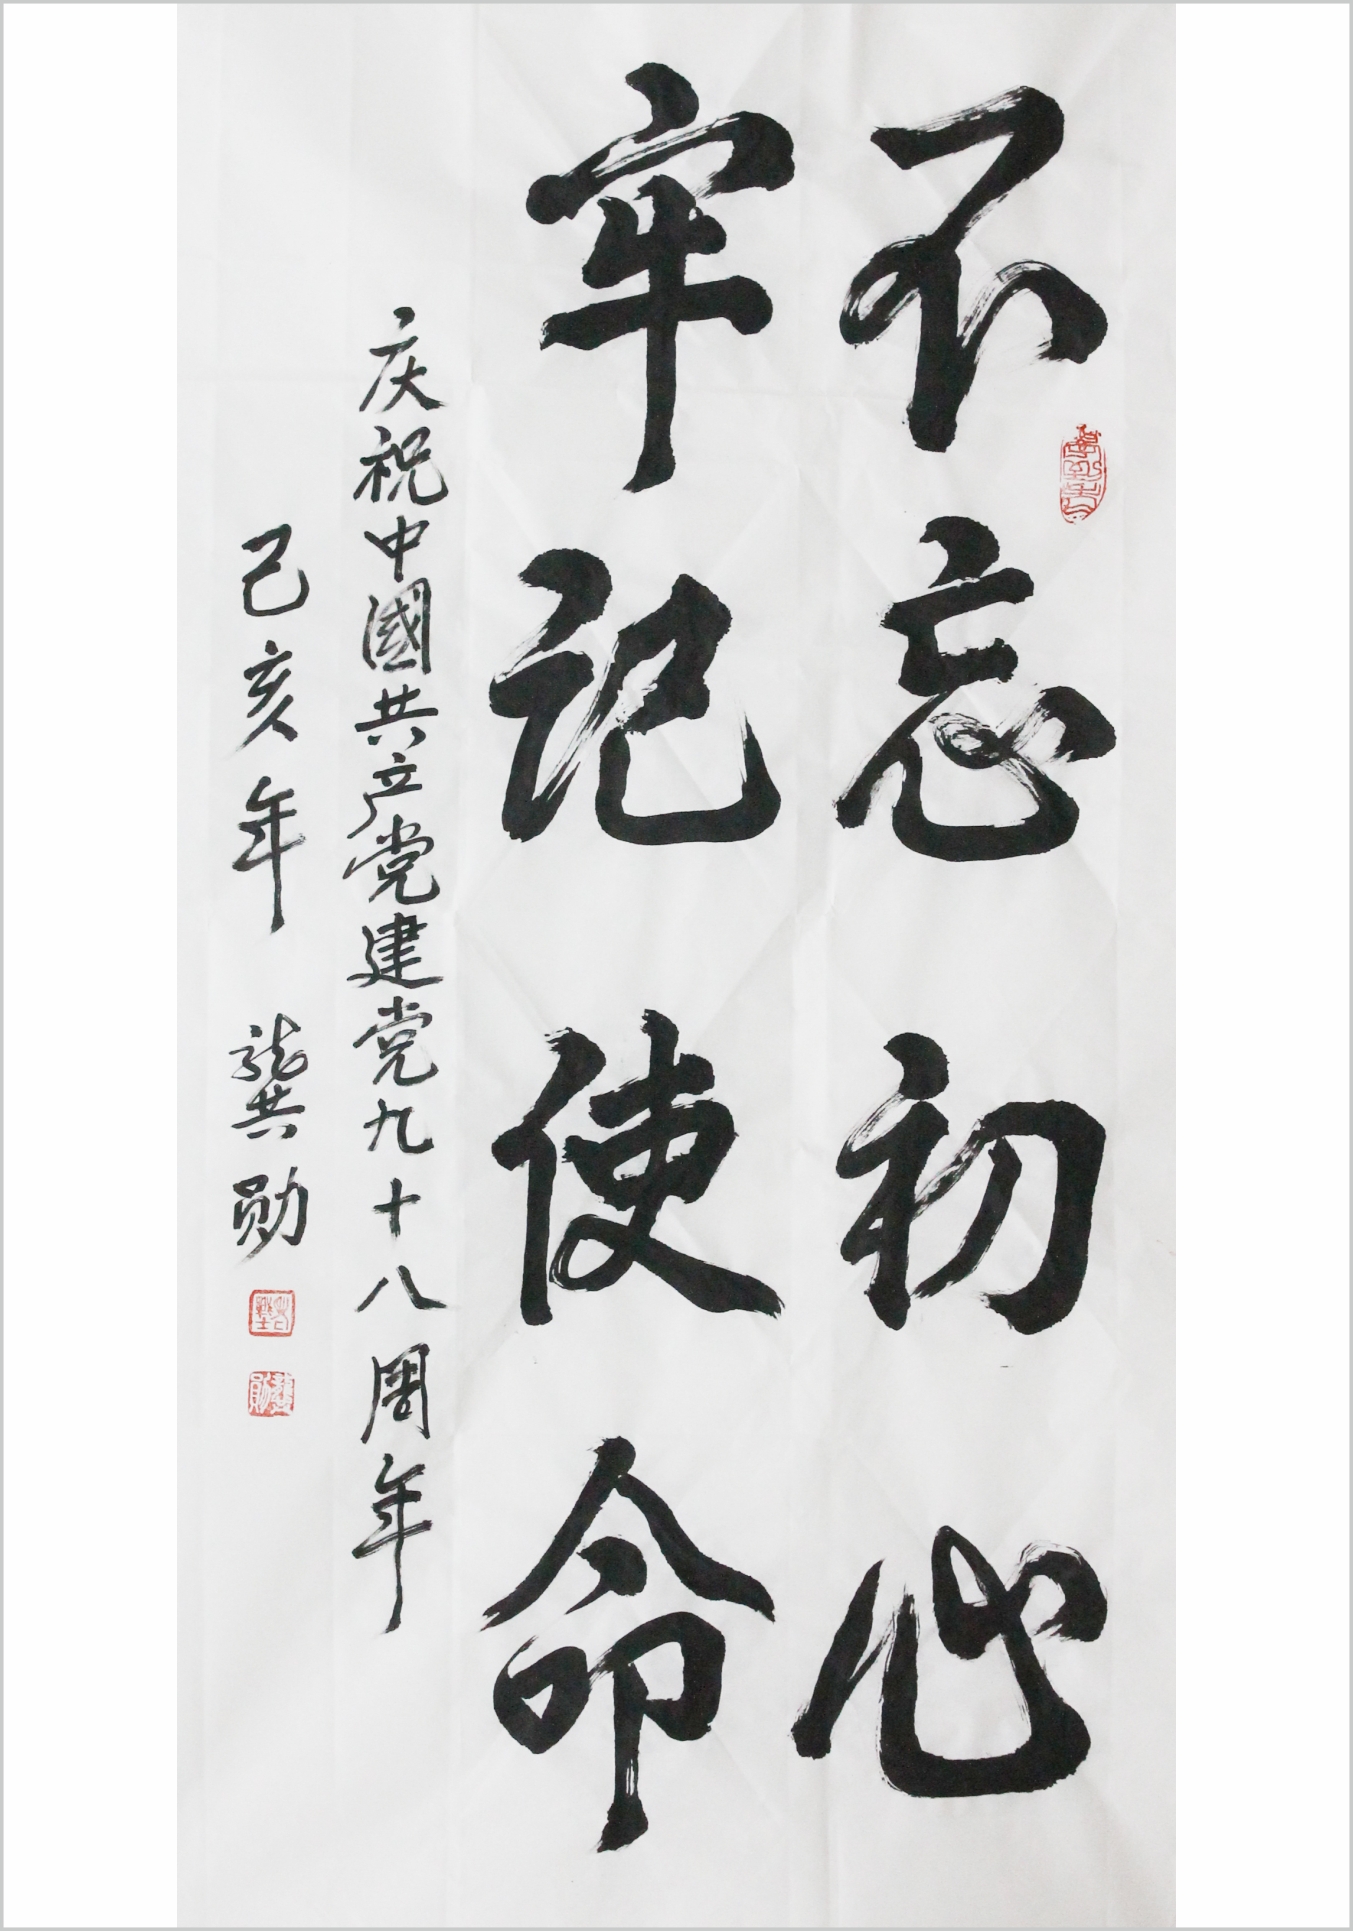 不忘初心
牢记使命
庆祝中國共产党建党九十八周年
己亥年 龔勋